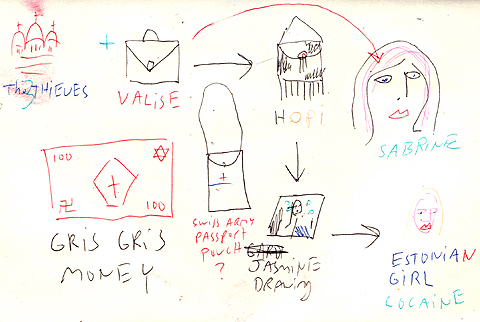 The 3 THIEVES
VALISE
HOPI
SABRINE
100
100
GRIS GRIS
MONEY
SWISS ARMY
PASSPORT
POUCH
?
JASMINE
DRAWING
ESTONIAN
GIRL
COCAINE